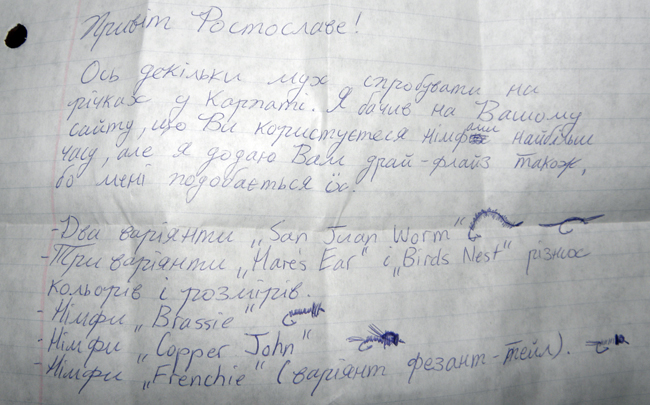 Привіт Ростославе!
Ось декільки мух спробувати на
річках у Карпаті. Я бачив на Вашому
сайту, що Ви користуєтеся німфами найбільш
часу, але я додаю Вам драй-флайз також,
бо мені подобається їх.
-Два варіянти „San Juan Worm"
-Три варіянти „Hare's Ear" і „Birds Nest" різних
кольорів і розмірів.
- Німфи „Brassie"
- Німфи „Copper John"
- Німфи „Frenchie" (варіянт фезант-тейл).